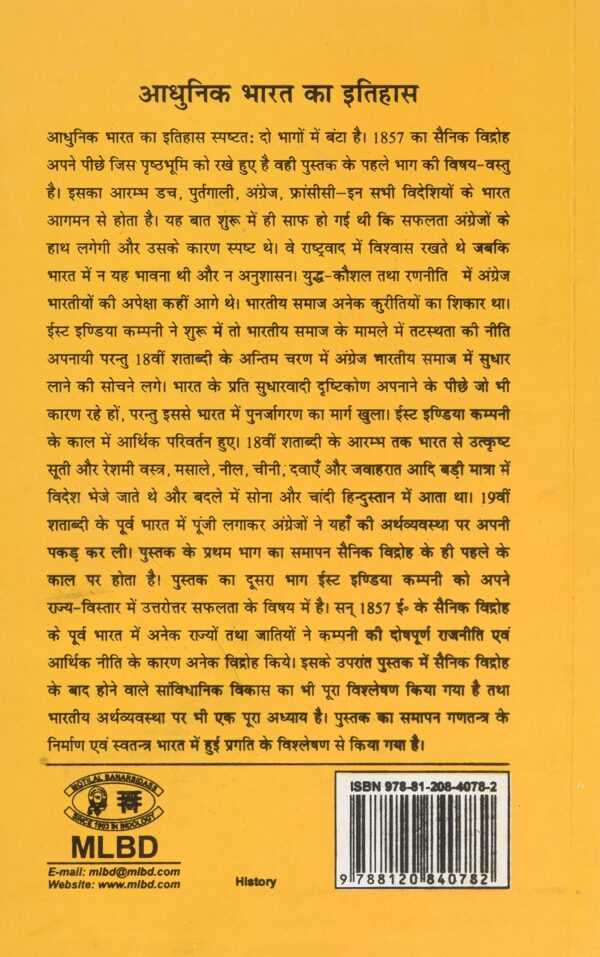 आधुनिक भारत का इतिहास
आधुनिक भारत का इतिहास स्पष्टत: दो भागों में बंटा है। 1857 का सैनिक विद्रोह
अपने पीछे जिस पृष्ठभूमि को रखे हुए है वही पुस्तक के पहले भाग की विषय-वस्तु
है। इसका आरम्भ डच, पुर्तगाली, अंग्रेज, फ्रांसीसी-इन सभी विदेशियों के भारत
आगमन से होता है। यह बात शुरू में ही साफ हो गई थी कि सफलता अंग्रेजों के
हाथ लगेगी और उसके कारण स्पष्ट थे। वे राष्ट्रवाद में विश्वास रखते थे जबकि
भारत में न यह भावना थी और न अनुशासन। युद्ध-कौशल तथा रणनीति में अंग्रेज
भारतीयों की अपेक्षा कहीं आगे थे। भारतीय समाज अनेक कुरीतियों का शिकार था।
ईस्ट इण्डिया कम्पनी ने शुरू में तो भारतीय समाज के मामले में तटस्थता की नीति
अपनायी परन्तु 18वीं शताब्दी के अन्तिम चरण में अंग्रेज भारतीय समाज में सुधार
लाने की सोचने लगे। भारत के प्रति सुधारवादी दृष्टिकोण अपनाने के पीछे जो भी
कारण रहे हों, परन्तु इससे भारत में पुनर्जागरण का मार्ग खुला। ईस्ट इण्डिया कम्पनी
के काल में आर्थिक परिवर्तन हुए। 18वीं शताब्दी के आरम्भ तक भारत से उत्कृष्ट
सूती और रेशमी वस्त्र, मसाले, नील, चीनी, दवाएँ और जवाहरात आदि बड़ी मात्रा में
विदेश भेजे जाते थे और बदले में सोना और चांदी हिन्दुस्तान में आता था। 19वीं
शताब्दी के पूर्व भारत में पूंजी लगाकर अंग्रेजों ने यहाँ की अर्थव्यवस्था पर अपनी
पकड़ कर ली। पुस्तक के प्रथम भाग का समापन सैनिक विद्रोह के ही पहले के
काल पर होता है। पुस्तक का दूसरा भाग ईस्ट इण्डिया कम्पनी को अपने
राज्य-विस्तार में उत्तरोत्तर सफलता के विषय में है। सन् 1857 ई॰ के सैनिक विद्रोह
के पूर्व भारत में अनेक राज्यों तथा जातियों ने कम्पनी की दोषपूर्ण राजनीति एवं
आर्थिक नीति के कारण अनेक विद्रोह किये। इसके उपरांत पुस्तक में सैनिक विद्रोह
के बाद होने वाले सांविधानिक विकास का भी पूरा विश्लेषण किया गया है तथा
भारतीय अर्थव्यवस्था पर भी एक पूरा अध्याय है। पुस्तक का समापन गणतन्त्र के
निर्माण एवं स्वतन्त्र भारत में हुई प्रगति के विश्लेषण से किया गया है।
MOTILAL BANARSIDASS
SINCE 1903 IN INDOLOGY
MLBD
E-mail: mlbd@mlbd.com
Website: www.mlbd.com
History
ISBN 978-81-208-4078-2
9 788120 840782